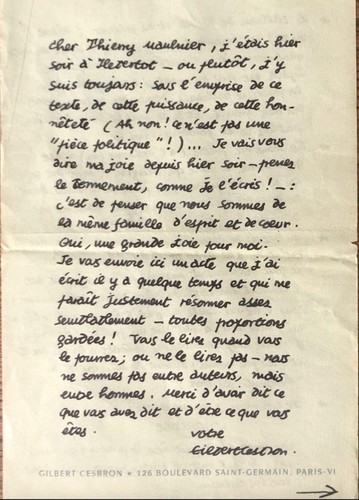 cher Thierry Maulnier, j'étais hier
soir à Hébertot – ou plutôt, j'y
suis toujours : sous l'emprise de ce
texte, de cette puissance, de cette hon-
nêteté (Ah non! ce n'est pas une
"pièce politique"!)... Je vais vous
dire ma joie depuis hier soir – prenez
le fermement, comme je l'écris! – :
c'est de penser que nous sommes de
la même famille d'esprit et de coeur.
Oui, une grande joie pour moi.
Je vous envoie ici un acte que j'ai
écrit il y a quelque temps et qui me
paraît justement résonner assez
semblablement – toutes proportions
gardées! Vous le lirez quand vous
le pourrez; ou ne le lirez pas – nous
ne sommes pas entre auteurs, mais
entre hommes. Merci d'avoir dit ce
que vous avez dit et d'être ce que vous
êtes.
votre
Gilbert Cesbron.
GILBERT CESBRON * 126 BOULEVARD SAINT-GERMAIN, PARIS-VI